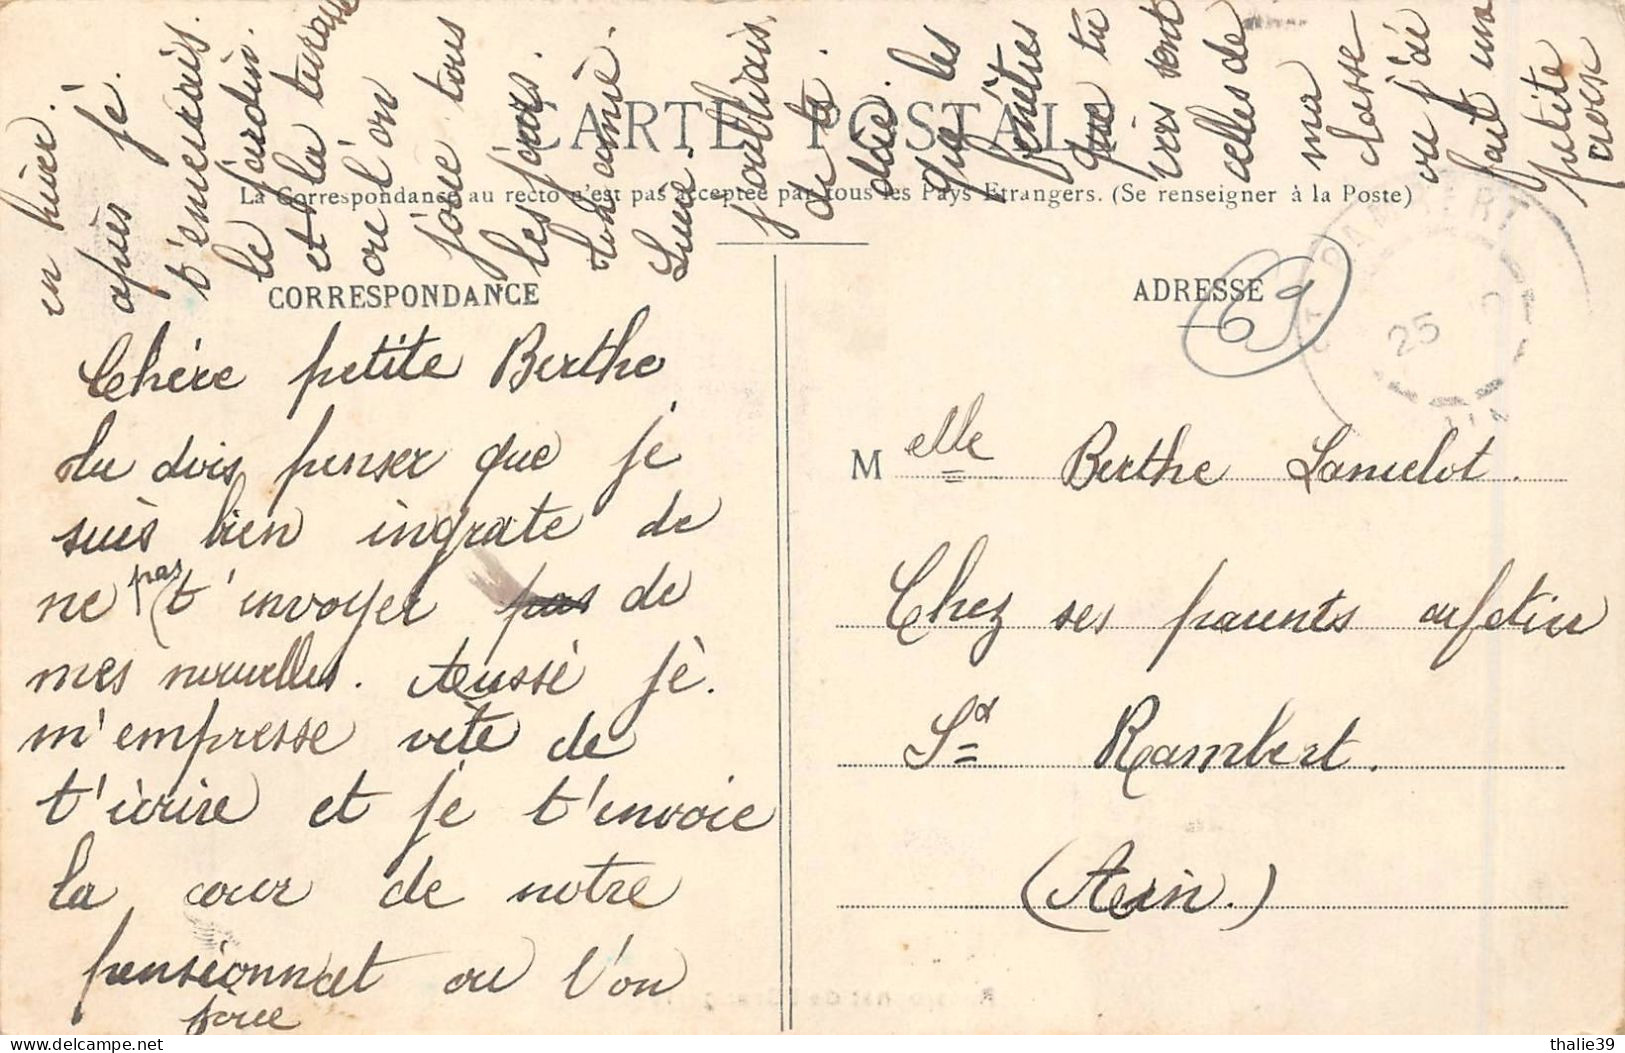 CARTE POSTALE
La Correspondance au recto n'est pas acceptée par tous les Pays Etrangers. (Se renseigner à la Poste)
CORRESPONDANCE
Chère petite Berthe
tu dois penser que je
suis bien ingrate de
ne pas t'envoyer pas de
mes nouvelles. Aussi je
m'empresse vite de
t'écrire et je t'envoie
la cour de notre
pensionnat ou l'on
joue
en hiver.
après je
t'enverrais.
le jardin.
et la terrasse
ou l'on
joue tous
les jours.
Ton amie
Lucie.
J'oubliais
de te
dire.
que les
fenêtres
que tu
vois sont
celles de
ma
classe
ou j'ai
fait une
petite
croix
ADRESSE
Melle Berthe Lancelot.
Chez ses parents
St Rambert.
(Ain.)
RAMBERT
25
AIN
thalie39
delcampe.net